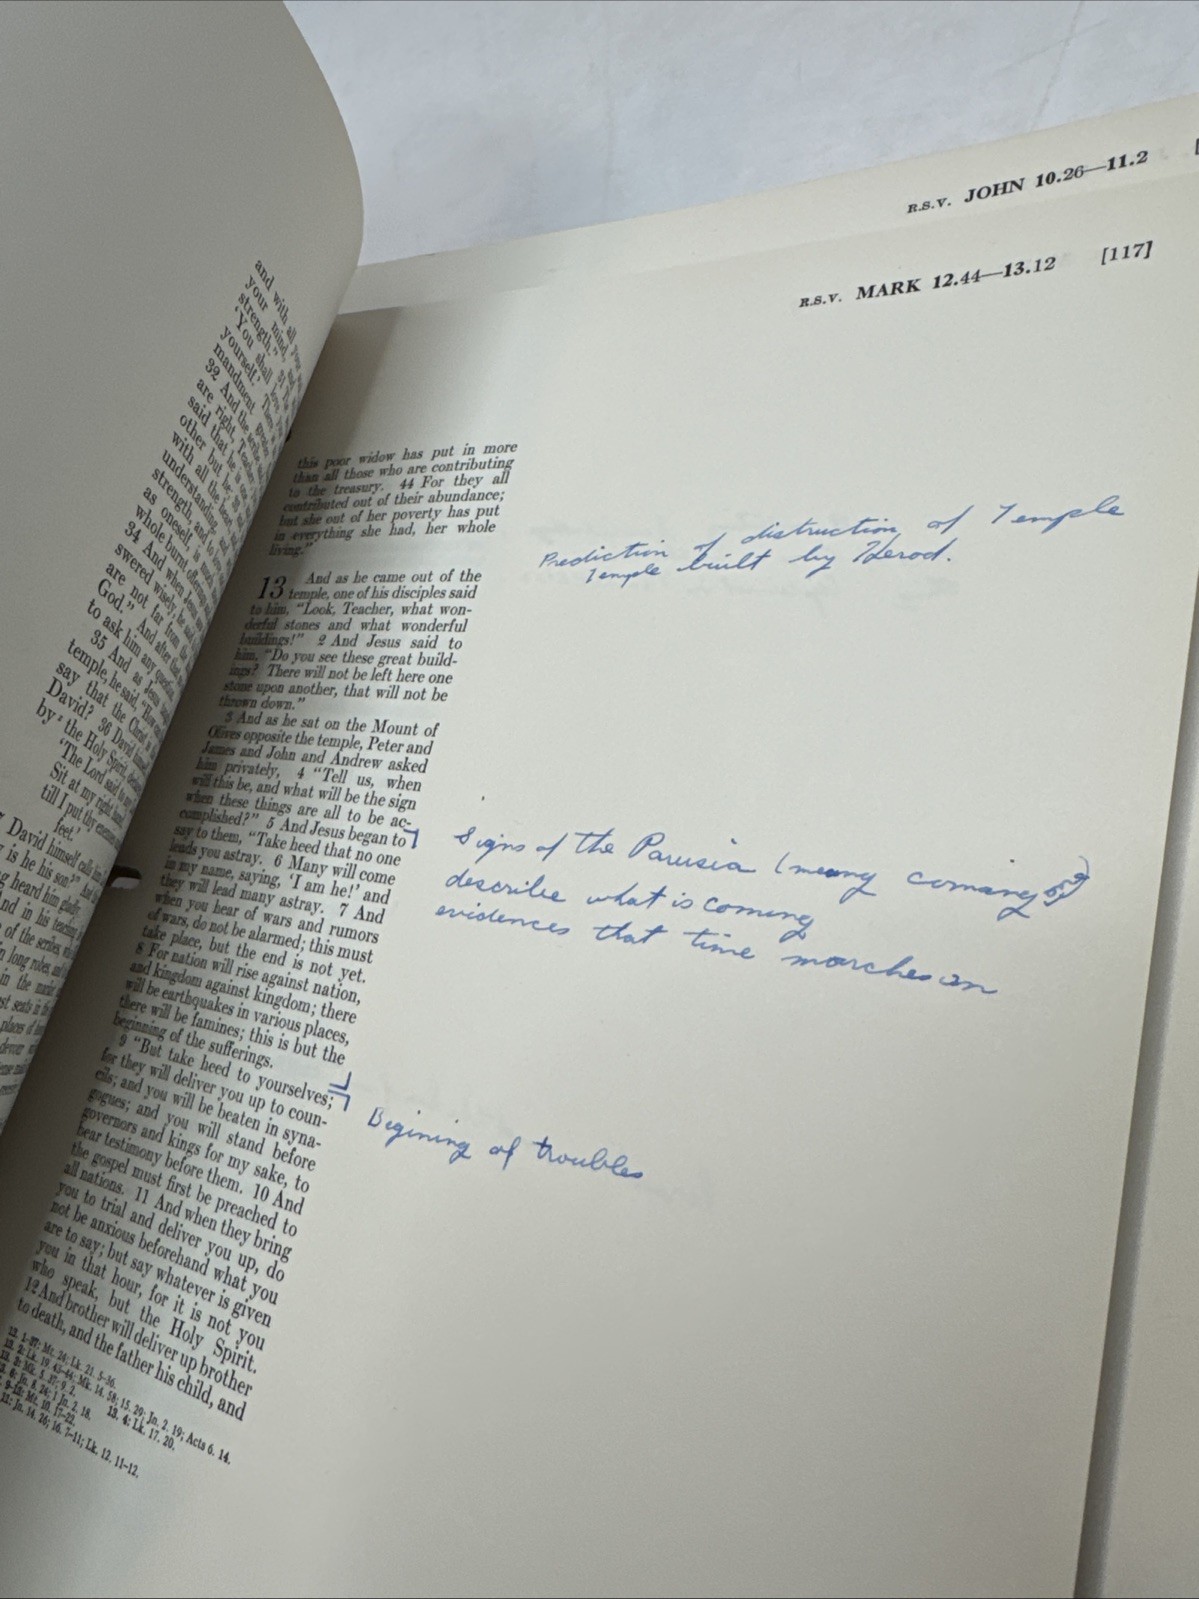 R.S.V. JOHN 10.26—11.2
R.S.V. MARK 12.44—13.12 [117]
and with all your
your mind, and
strength.' 31 The
'You shall love
yourself.' There
mandment greater
32 And the scribe
are right, Teacher
said that he is one
other but he; 33
with all the heart,
understanding,
strength, and to
as oneself, is much
whole burnt offerings
34 And when Jesus
swered wisely, he said
are not far from the
God." And after that
to ask him any question.
35 And as Jesus taught
temple, he said, "How can
say that the Christ is
David? 36 David himself
by the Holy Spirit, declared
'The Lord said to my
Sit at my right hand,
till I put thy enemies
feet.'
David himself calls him
is he his son?" And
heard him gladly.
And in his teaching
of the scribes, who
in long robes, and
in the market
best seats in the
places of honor
this poor widow has put in more
than all those who are contributing
to the treasury. 44 For they all
contributed out of their abundance;
but she out of her poverty has put
in everything she had, her whole
living."
13 And as he came out of the
temple, one of his disciples said
to him, "Look, Teacher, what won-
derful stones and what wonderful
buildings!" 2 And Jesus said to
him, "Do you see these great build-
ings? There will not be left here one
stone upon another, that will not be
thrown down."
3 And as he sat on the Mount of
Olives opposite the temple, Peter and
James and John and Andrew asked
him privately, 4 "Tell us, when
will this be, and what will be the sign
when these things are all to be ac-
complished?" 5 And Jesus began to
say to them, "Take heed that no one
leads you astray. 6 Many will come
in my name, saying, 'I am he!' and
they will lead many astray. 7 And
when you hear of wars and rumors
of wars, do not be alarmed; this must
take place, but the end is not yet.
8 For nation will rise against nation,
and kingdom against kingdom; there
will be earthquakes in various places,
there will be famines; this is but the
beginning of the sufferings.
9 "But take heed to yourselves;
for they will deliver you up to coun-
cils; and you will be beaten in syna-
gogues; and you will stand before
governors and kings for my sake, to
bear testimony before them. 10 And
the gospel must first be preached to
all nations. 11 And when they bring
you to trial and deliver you up, do
not be anxious beforehand what you
are to say; but say whatever is given
you in that hour, for it is not you
who speak, but the Holy Spirit.
12 And brother will deliver up brother
to death, and the father his child, and
13. 1-37: Mt. 24; Lk. 21. 5-36.
13. 2: Lk. 19. 43-44; Mk. 14. 58; 15. 29; Jn. 2. 19; Acts 6. 14.
13. 3: Mk. 5. 37; 9. 2. 13. 4: Lk. 17. 20.
6: Jn. 8. 24; 1 Jn. 2. 18.
9-13: Mt. 10. 17-22.
11: Jn. 14. 26; 16. 7-11; Lk. 12. 11-12.
Prediction of distruction of Temple
Temple built by Herod.
Signs of the Parusia (meang comaing of)
describe what is coming
evidences that time marches on
Bigining of troubles